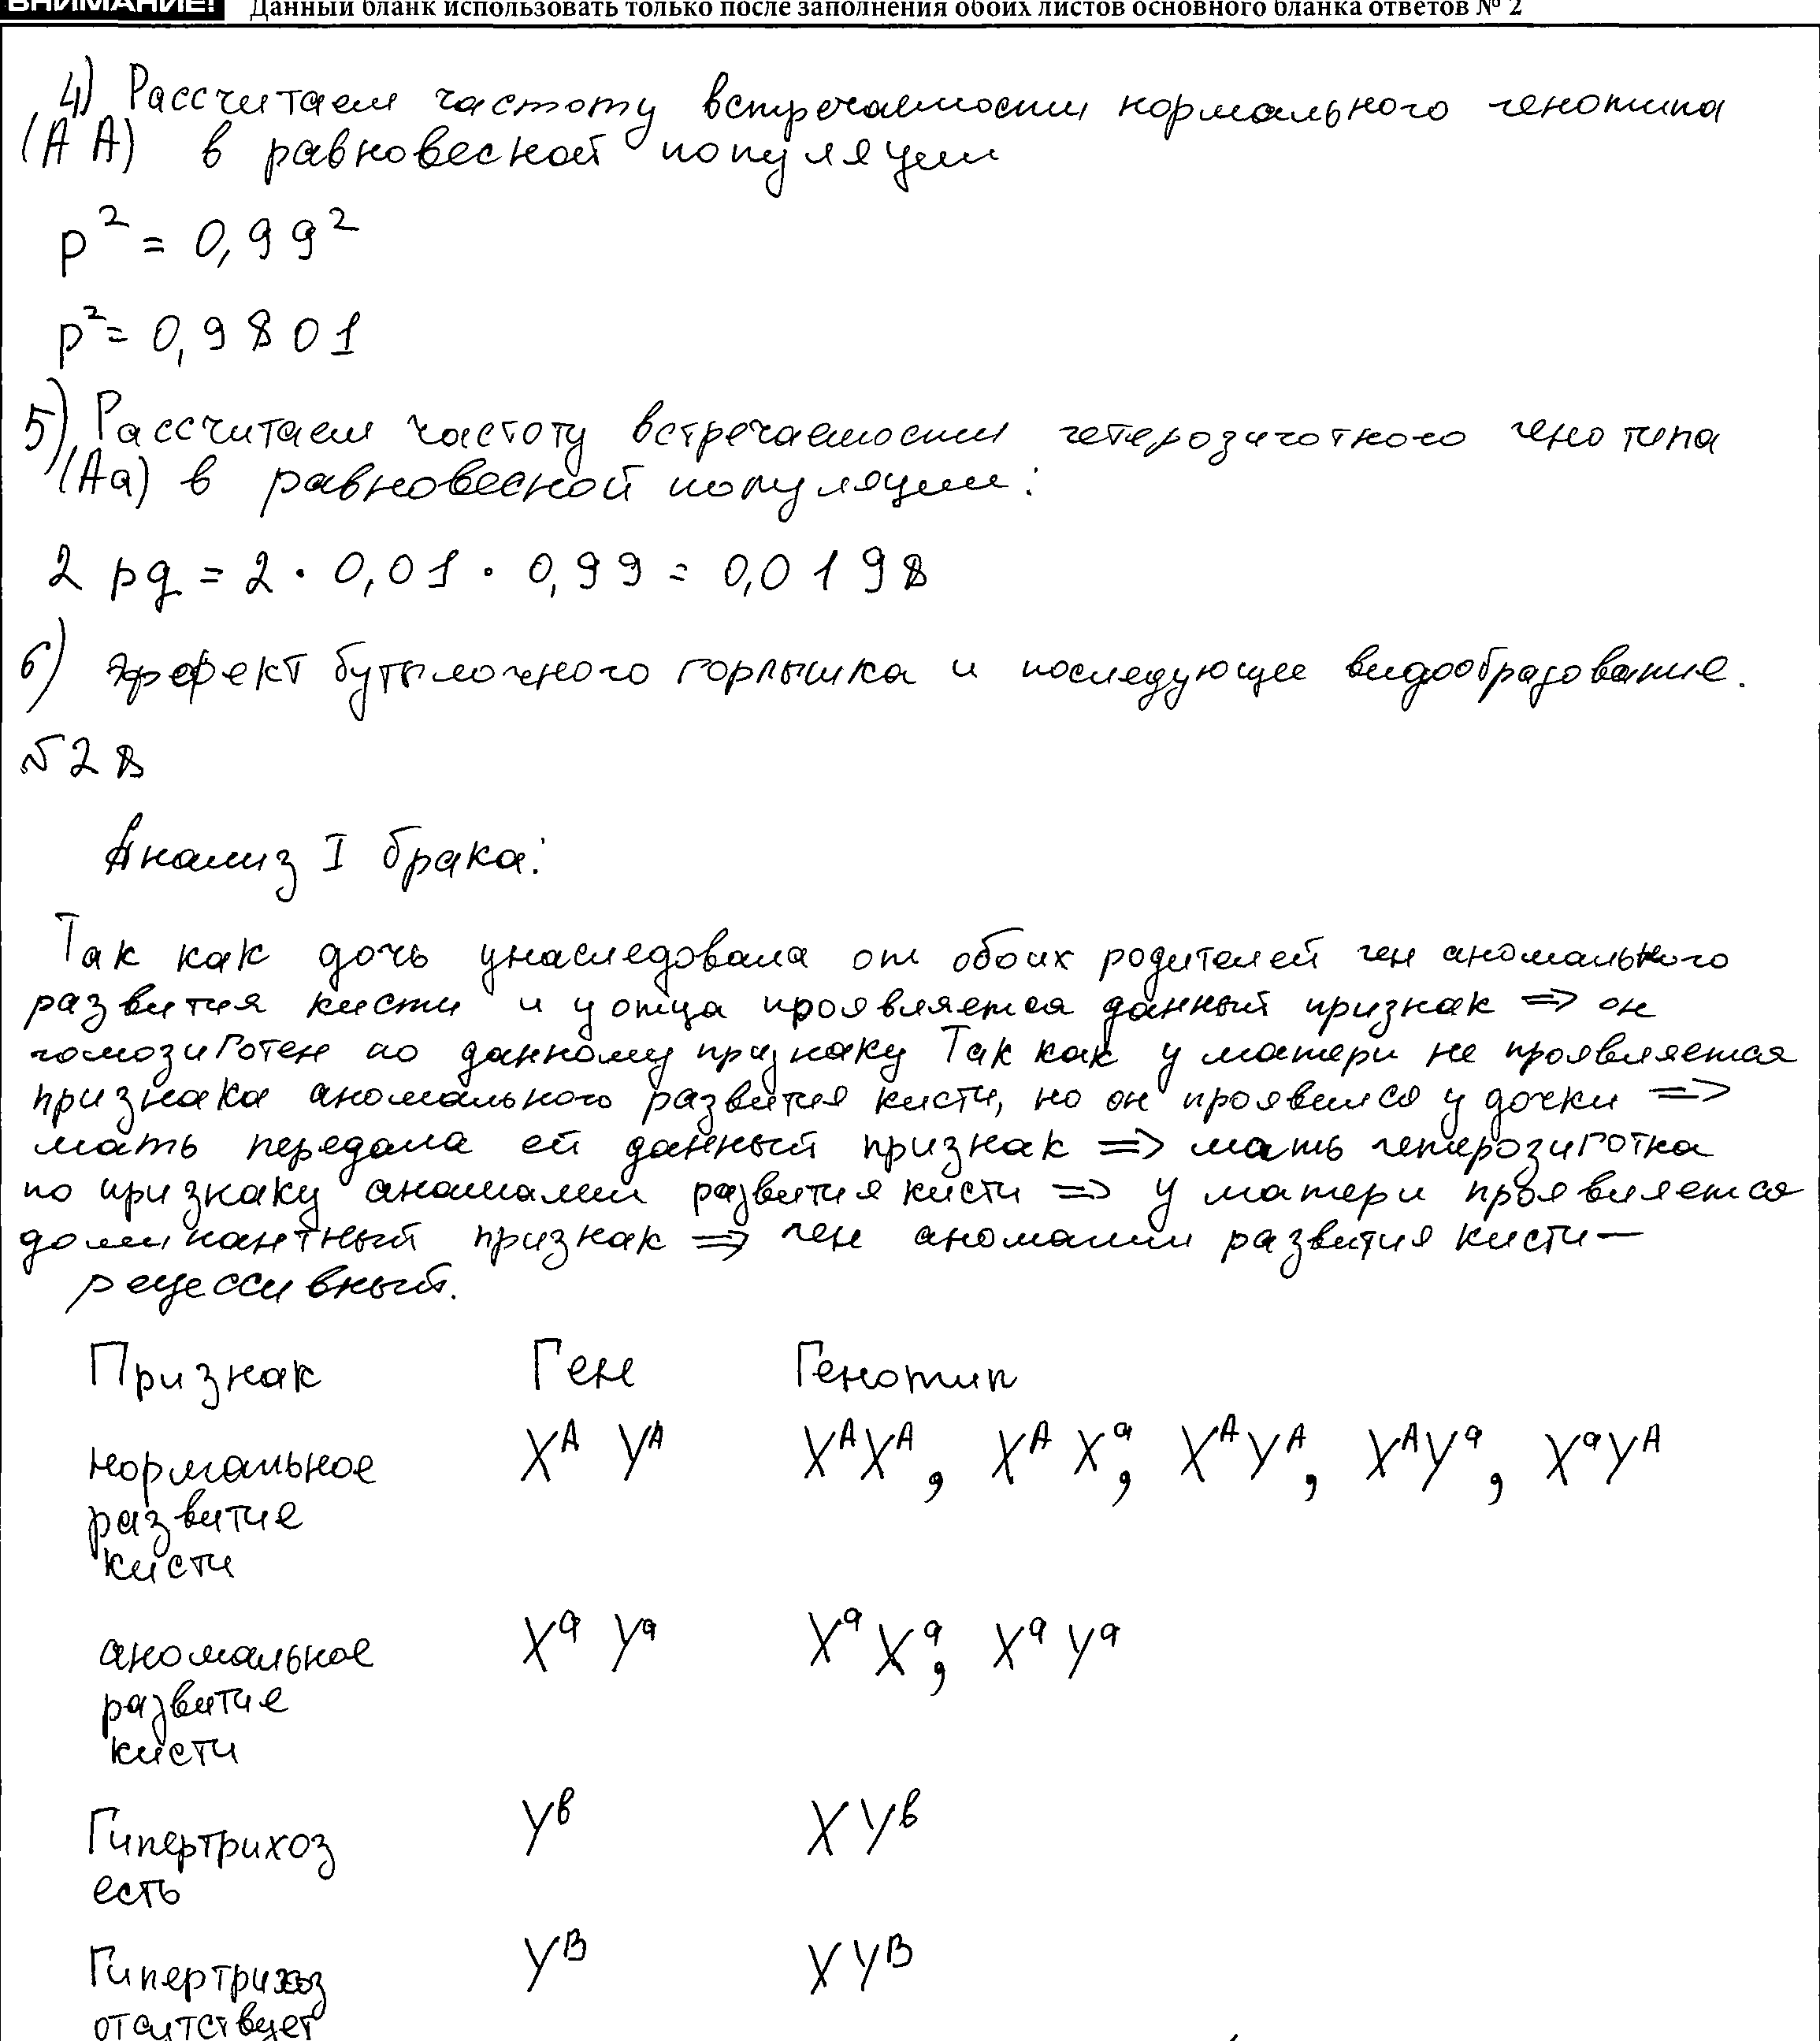 ВНИМАНИЕ! Данный бланк использовать только после заполнения обоих листов основного бланка ответов № 2
4) Рассчитаем частоту встречаемости нормального генотипа
(АА) в равновесной популяции
p² = 0,99²
p² = 0,9801
5) Рассчитаем частоту встречаемости гетерозиготного генотипа
(Аа) в равновесной популяции:
2 pq = 2 · 0,01 · 0,99 = 0,0198
6) Эффект бутылочного горлышка и последующее видообразование.
№28
Анализ I брака:
Так как дочь унаследовала от обоих родителей ген аномального
развития кисти и у отца проявляется данный признак => он
гомозиготен по данному признаку Так как у матери не проявляется
признака аномального развития кисти, но он проявился у дочки =>
мать передала ей данный признак => мать гетерозиготна
по признаку аномалии развития кисти => у матери проявляется
доминантный признак => ген аномалии развития кисти —
рецессивный.
Признак Ген Генотип
нормальное X^A Y^A X^A X^A, X^A X^a, X^A Y^A, X^A Y^a, X^a Y^A
развитие
кисти
аномальное X^a Y^a X^a X^a, X^a Y^a
развитие
кисти
Гипертрихоз Y^b X Y^b
есть
Гипертрихоз Y^B X Y^B
отсутствует